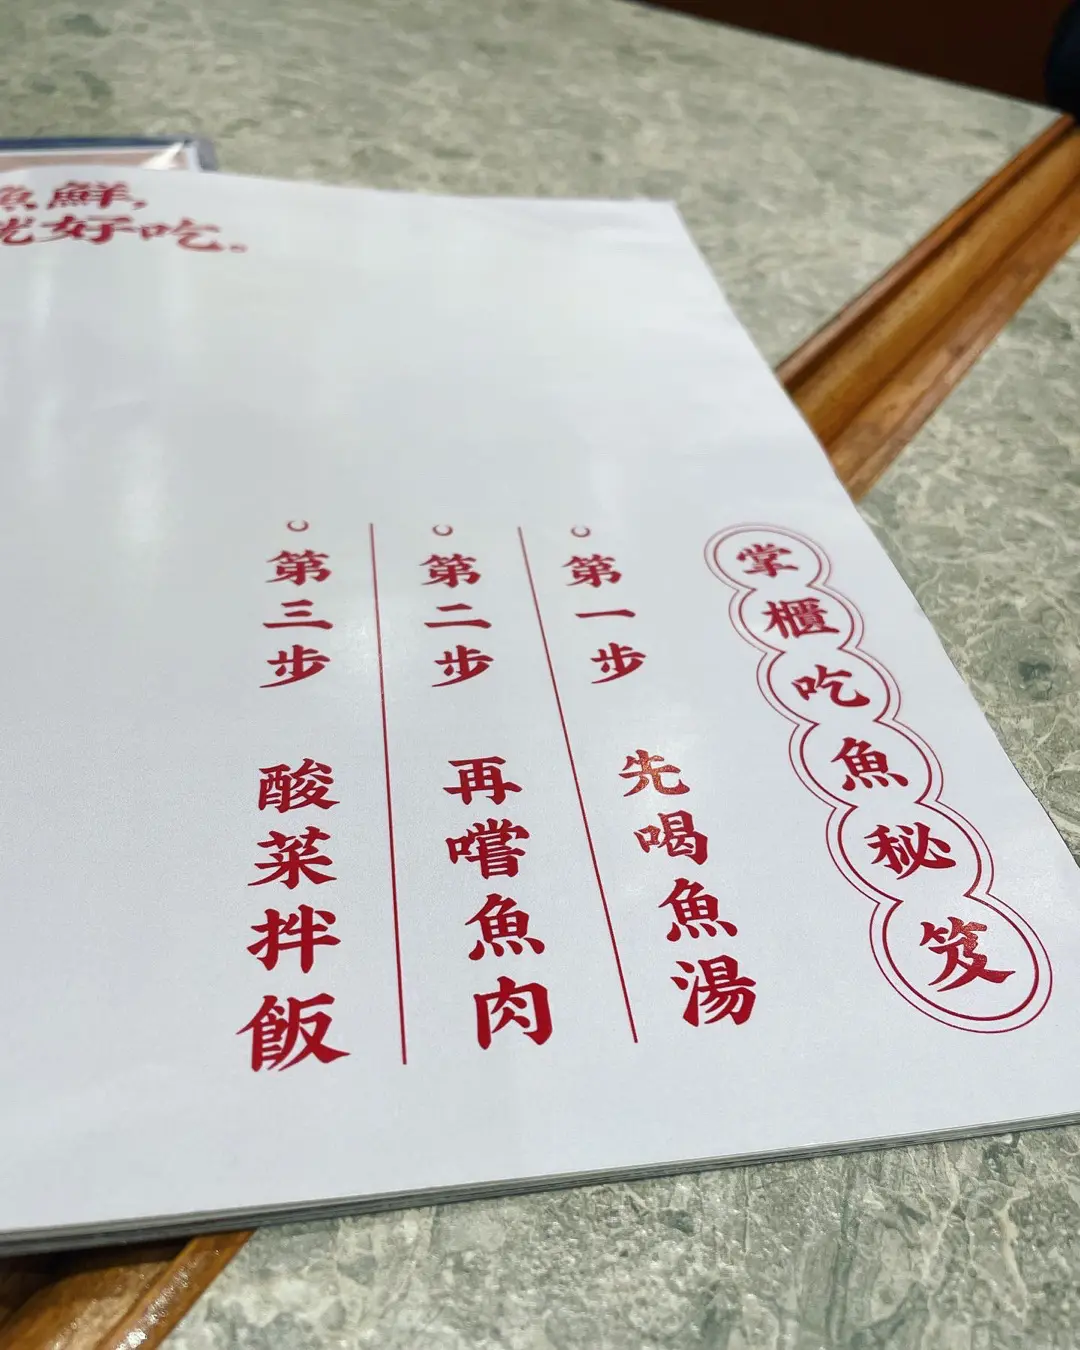 魚鮮，
就好吃。
掌櫃吃魚秘笈
第一步 先喝魚湯
第二步 再嚐魚肉
第三步 酸菜拌飯